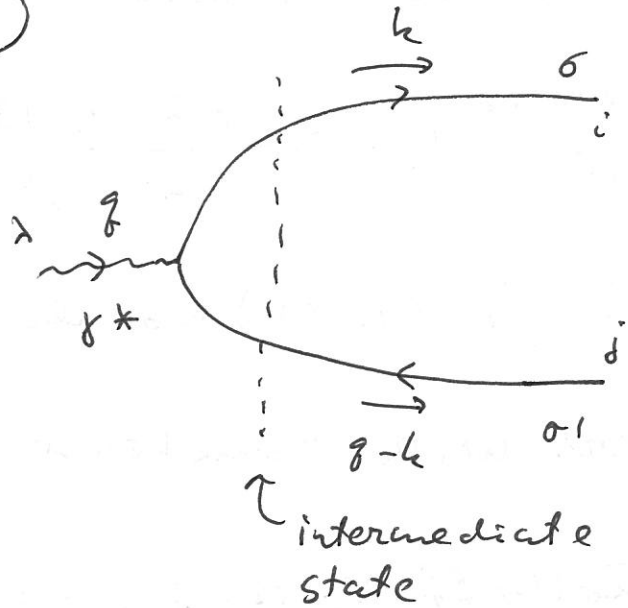 k
σ
i
λ
q
γ*
j
q-k
σ'
intermediate
state